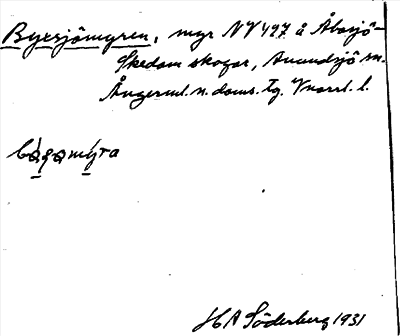 Byesjömyren, myr NV 497 å Åbosjö-
Skedom skogar, Anundsjö sn.
Ångerml. n. doms. Tg. Vnorrl. l.
H A Söderberg 1931